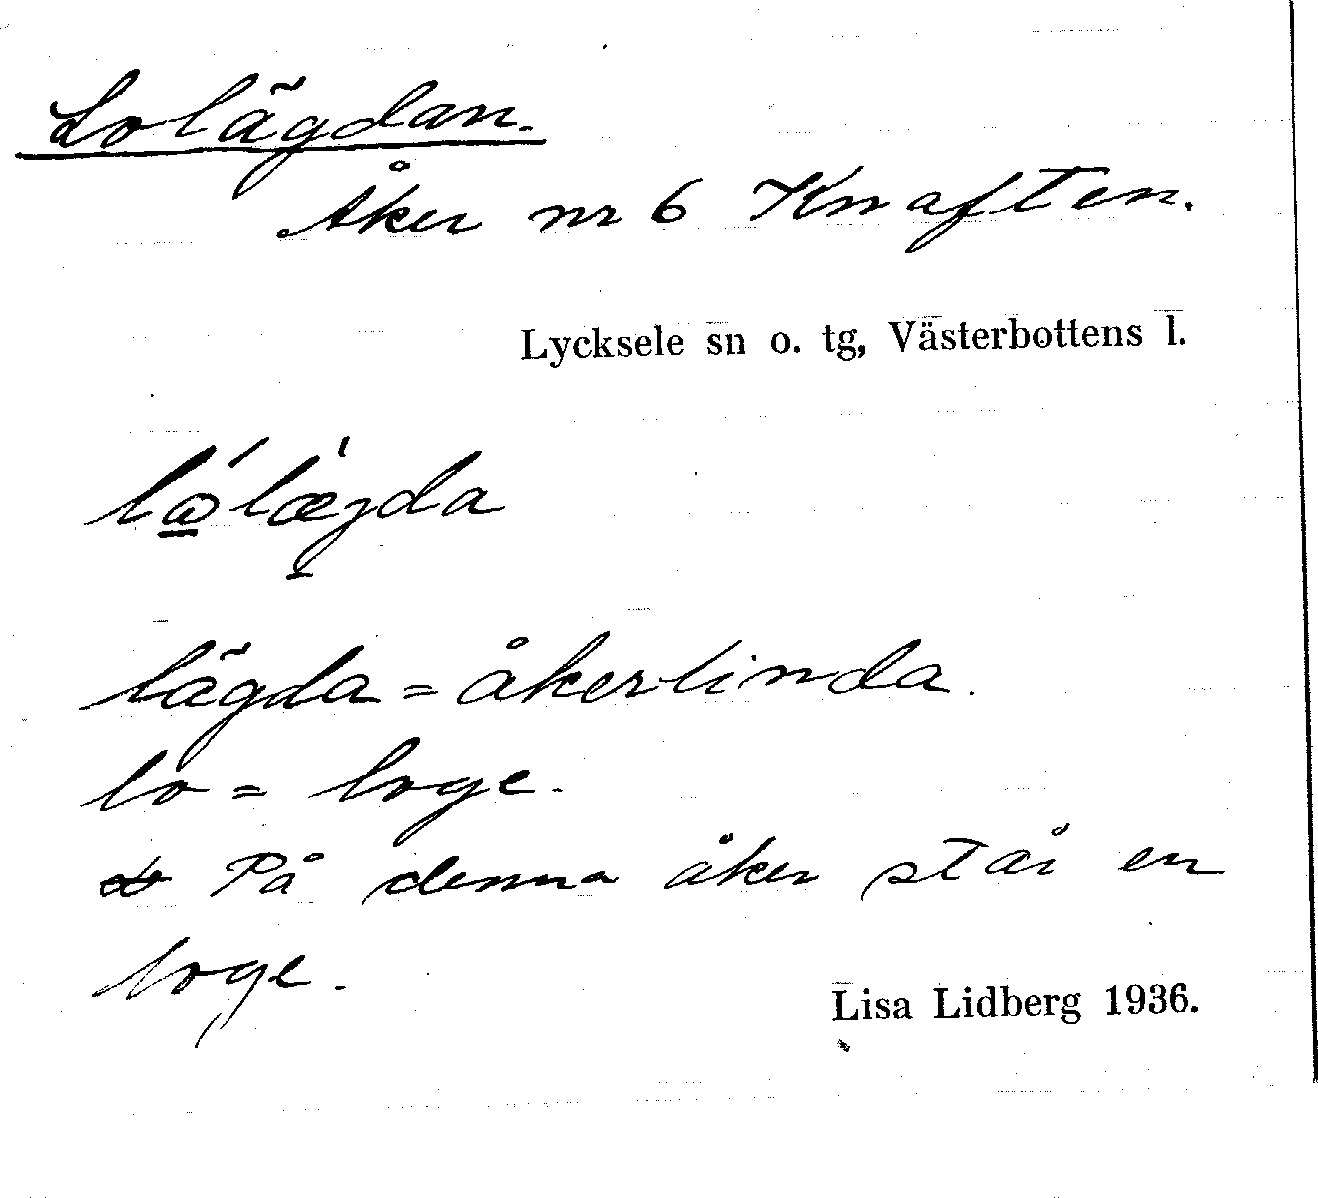 Lolägdan.
Åker nr 6 Knaften.
Lycksele sn o. tg, Västerbottens l.
lägda = åkerlinda.
lo = loge.
På denna åker står en
loge.
Lisa Lidberg 1936.